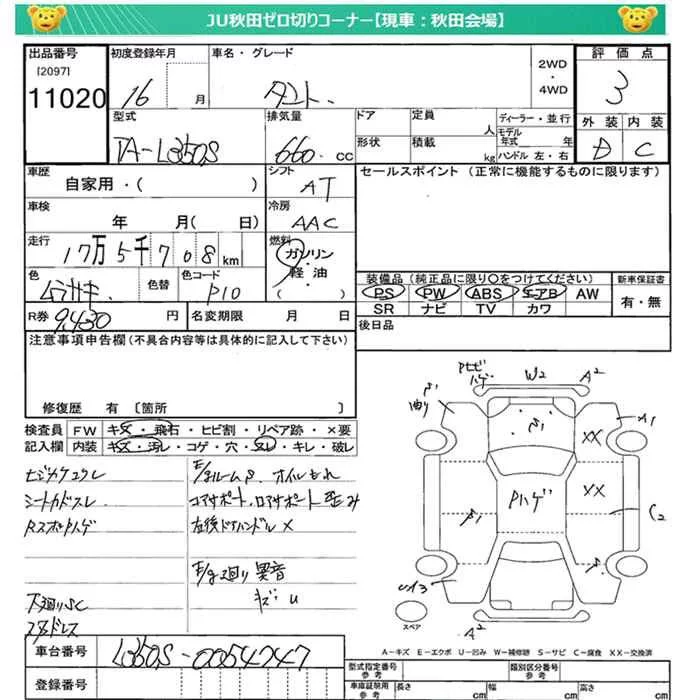 JU秋田ゼロ切りコーナー【現車：秋田会場】
出品番号 初度登録年月 車名・グレード 2WD・4WD 評価点
[2097]
11020 16 月 タント 3
外装 内装
D C
型式 排気量 ドア 定員 人 ディーラー・並行
TA-L350S 660 cc 形状 積載 kg モデル年式 年 ハンドル 左・右
車歴 シフト セールスポイント (正常に機能するものに限ります)
自家用・( ) AT
車検 冷房
年 月( 日) AAC
走行 燃料
17万5千708km ガソリン
軽・油
( )
色 色替 色コード 装備品 (純正品に限り○をつけてください) 新車保証書
ムラサキ P10 PS PW ABS エアB AW 有・無
SR ナビ TV カワ
R券 9,430 円 名変期限 月 日 後日品
注意事項申告欄(不具合内容等は具体的に記入して下さい)
修復歴 有 〔箇所 〕
検査員 FW キズ・飛石・ヒビ割・リペア跡・×要
記入欄 内装 キズ・汚レ・コゲ・穴・スレ・キレ・破レ
シートカドスレ
E/gルームS、オイルもれ
コアサポート、ロアサポート歪み
左後ドアハンドル×
E/g廻り異音
下廻りSC
キズ:U
W2 A2
A1
S1
XX
XX
Pハゲ
S1
C2
S1
S.
A2
スペア
A－キズ E－エクボ U－凹み W－補修跡 S－サビ C－腐食 XX－交換済
車台番号 L350S-0054747
登録番号
型式指定番号 参考 類別区分番号 参考
車庫証明用 参考 長さ cm 幅 cm 高さ cm